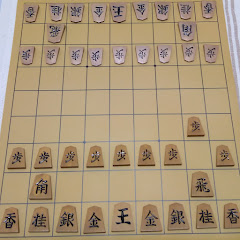 香桂銀金王金銀桂香
飛角
歩歩歩歩歩歩歩歩歩
歩
歩歩歩歩歩歩歩歩
角飛
香桂銀金王金銀桂香